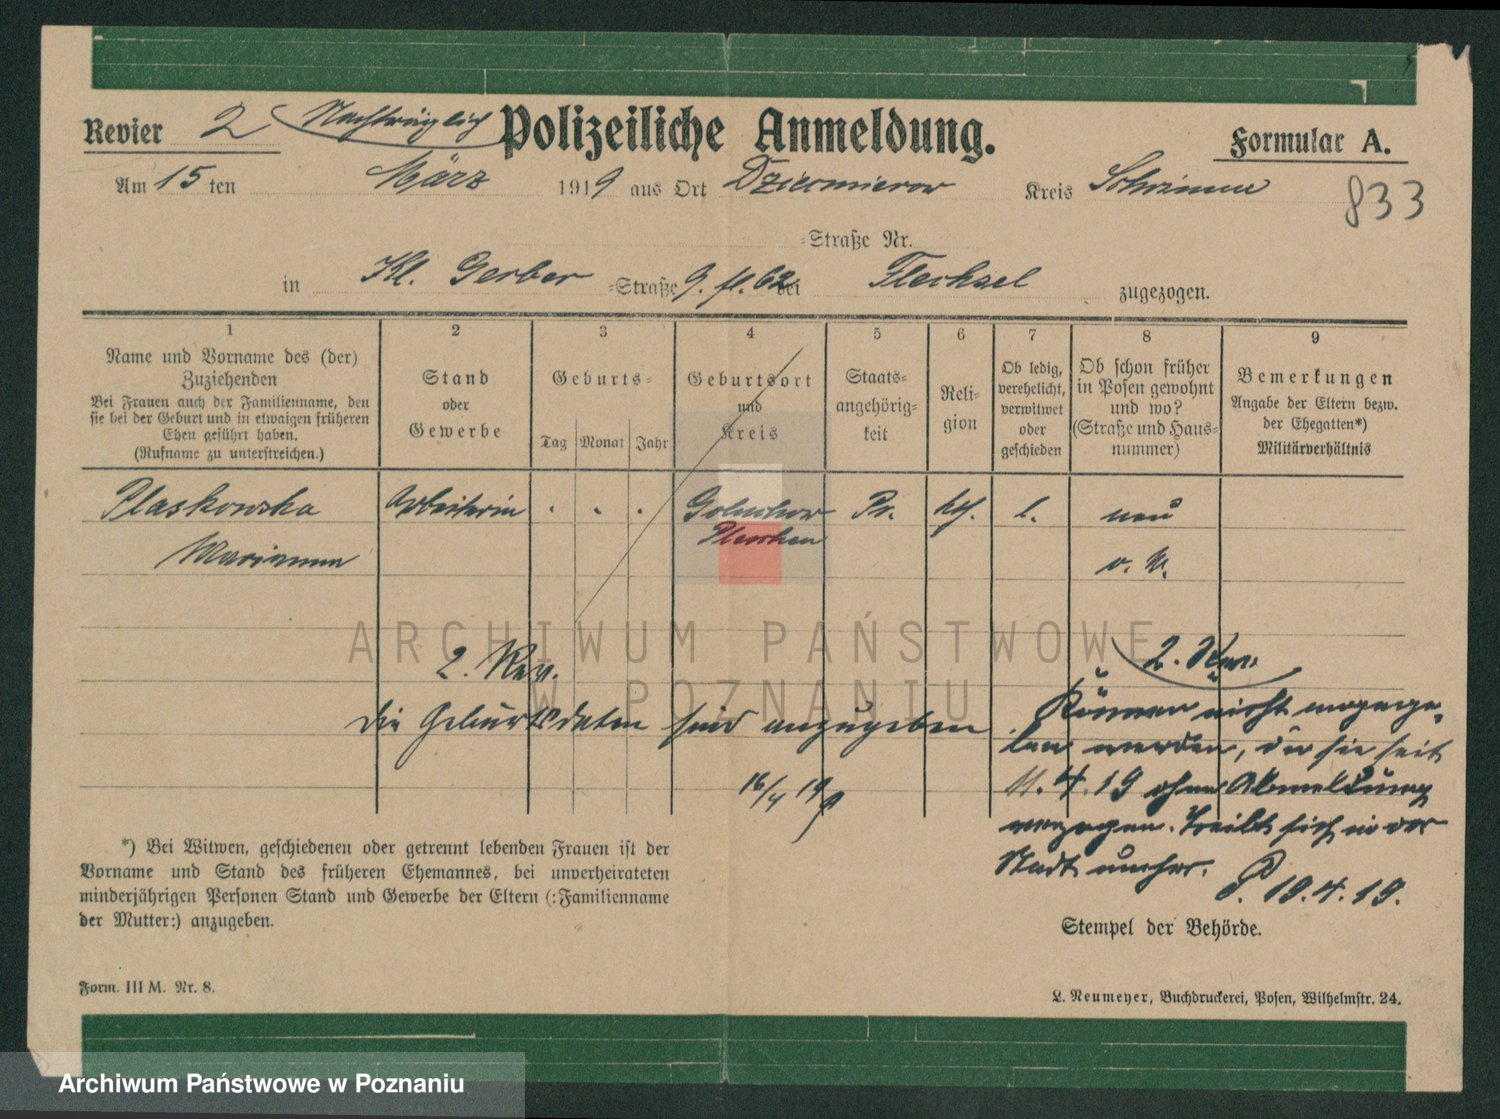 Revier 2 Nachträglich Polizeiliche Anmeldung. Formular A.
Am 15 ten März 1919 aus Ort Dziecmierow Kreis Schrimm 833
=Straße Nr.
in Kl. Gerber =Straße 9. fl. 62 bei Flechsel zugezogen.
1 2 3 4 5 6 7 8 9
Name und Vorname des (der)
Zuziehenden
Bei Frauen auch der Familienname, den
sie bei der Geburt und in etwaigen früheren
Ehen geführt haben.
(Rufname zu unterstreichen.)
Stand
oder
Gewerbe
Geburts=
Tag Monat Jahr
Geburtsort
und
Kreis
Staats=
angehörig=
keit
Reli=
gion
Ob ledig,
verehelicht,
verwitwet
oder
geschieden
Ob schon früher
in Posen gewohnt
und wo?
(Straße und Haus=
nummer)
Bemerkungen
Angabe der Eltern bezw.
der Ehegatten*)
Militärverhältnis
Plaskowska Arbeiterin . . . Goluchow Pr. kth. l. neu
Marianna Pleschen o. W.
2. Rev.
die Geburtsdaten sind anzugeben
16/4 19
2. Rev.
Können nicht angege=
ben werden, da sie seit
11.4.19 ohne Abmeldung
verzogen. Treibt sich in der
Stadt umher.
P. 19.4.19.
*) Bei Witwen, geschiedenen oder getrennt lebenden Frauen ist der
Vorname und Stand des früheren Ehemannes, bei unverheirateten
minderjährigen Personen Stand und Gewerbe der Eltern (:Familienname
der Mutter:) anzugeben.
Stempel der Behörde.
Form. III M. Nr. 8.
L. Neumeyer, Buchdruckerei, Posen, Wilhelmstr. 24.
ARCHIWUM PAŃSTWOWE
W POZNANIU
Archiwum Państwowe w Poznaniu